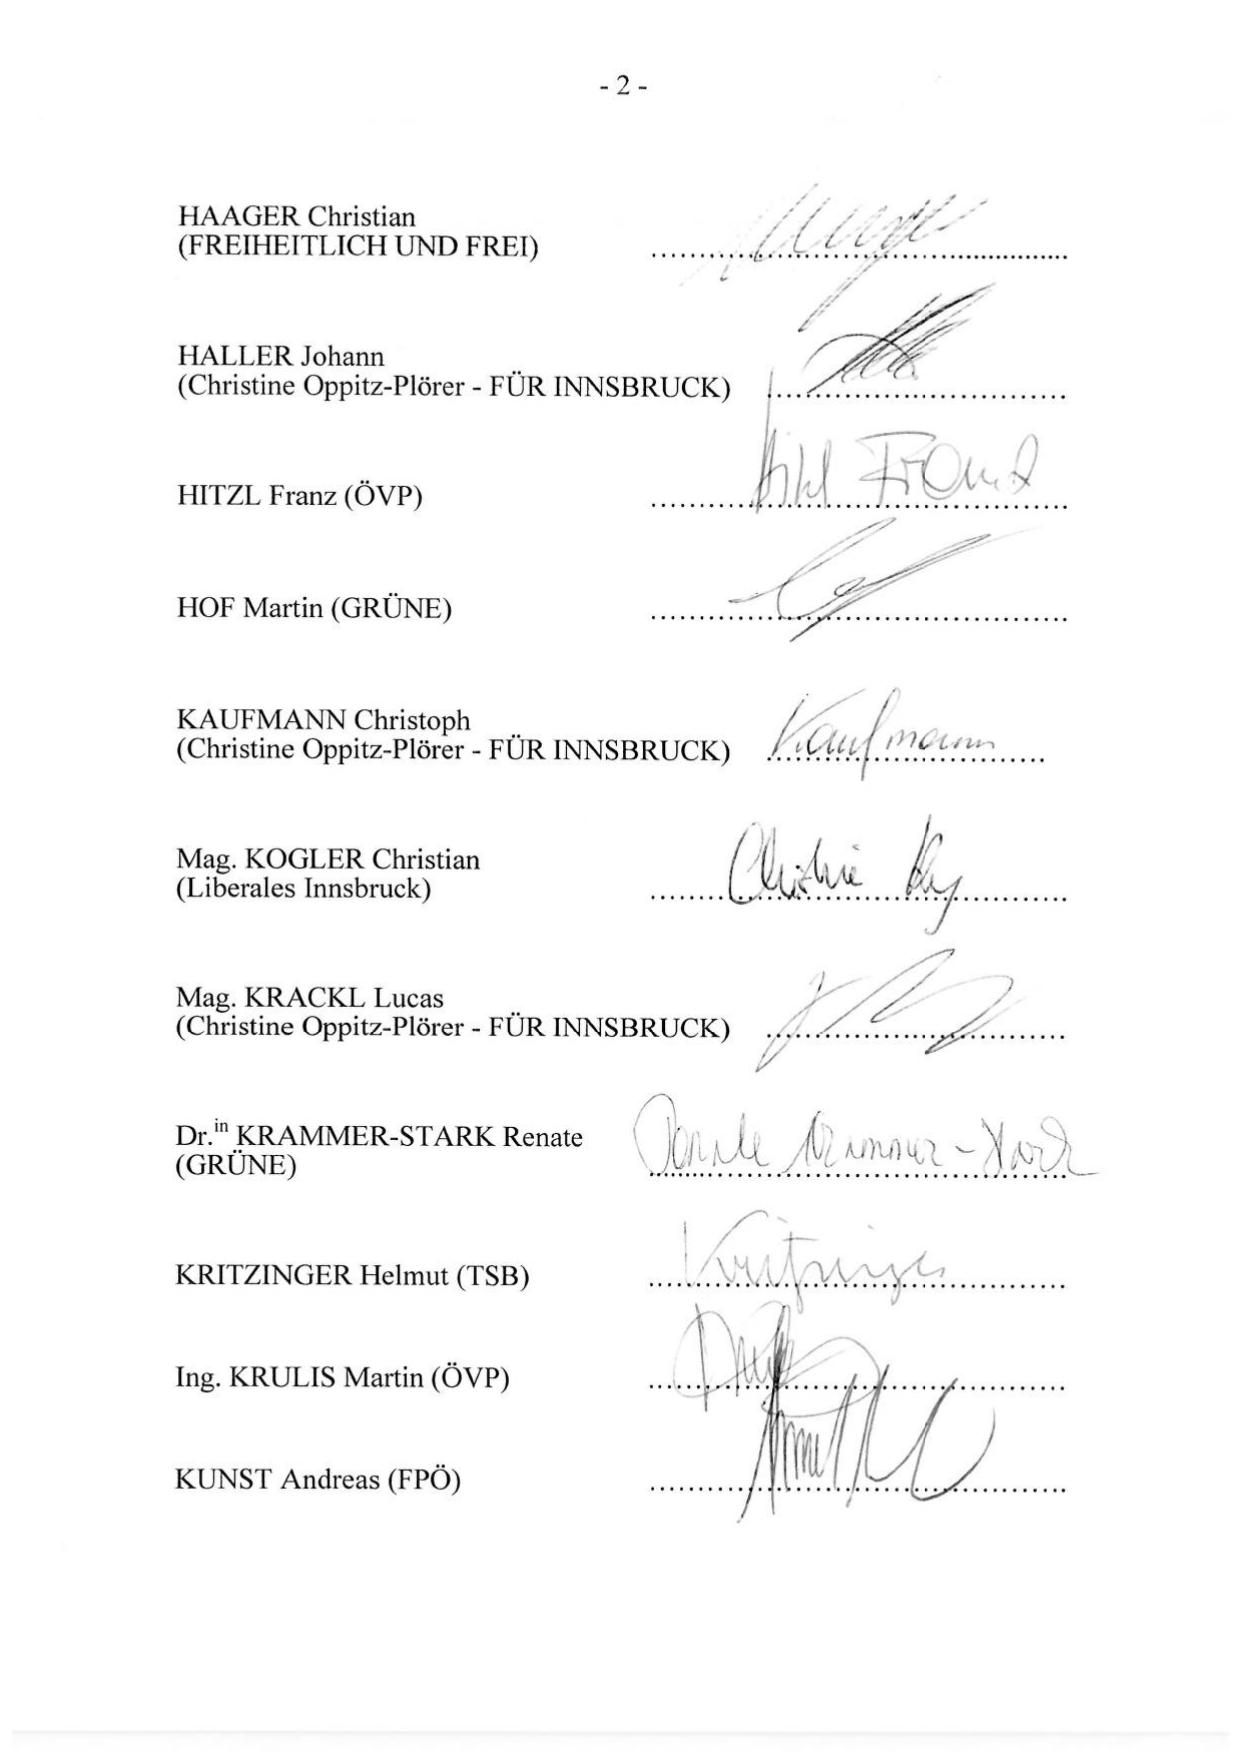 - 2 -
HAAGER Christian
(FREIHEITLICH UND FREI)
HALLER Johann
(Christine Oppitz-Plörer - FÜR INNSBRUCK)
HITZL Franz (ÖVP)
Hitzl Franz
HOF Martin (GRÜNE)
KAUFMANN Christoph
(Christine Oppitz-Plörer - FÜR INNSBRUCK)
Kaufmann
Mag. KOGLER Christian
(Liberales Innsbruck)
Mag. KRACKL Lucas
(Christine Oppitz-Plörer - FÜR INNSBRUCK)
Dr.in KRAMMER-STARK Renate
(GRÜNE)
Renate Krammer-Stark
KRITZINGER Helmut (TSB)
Kritzinger
Ing. KRULIS Martin (ÖVP)
KUNST Andreas (FPÖ)